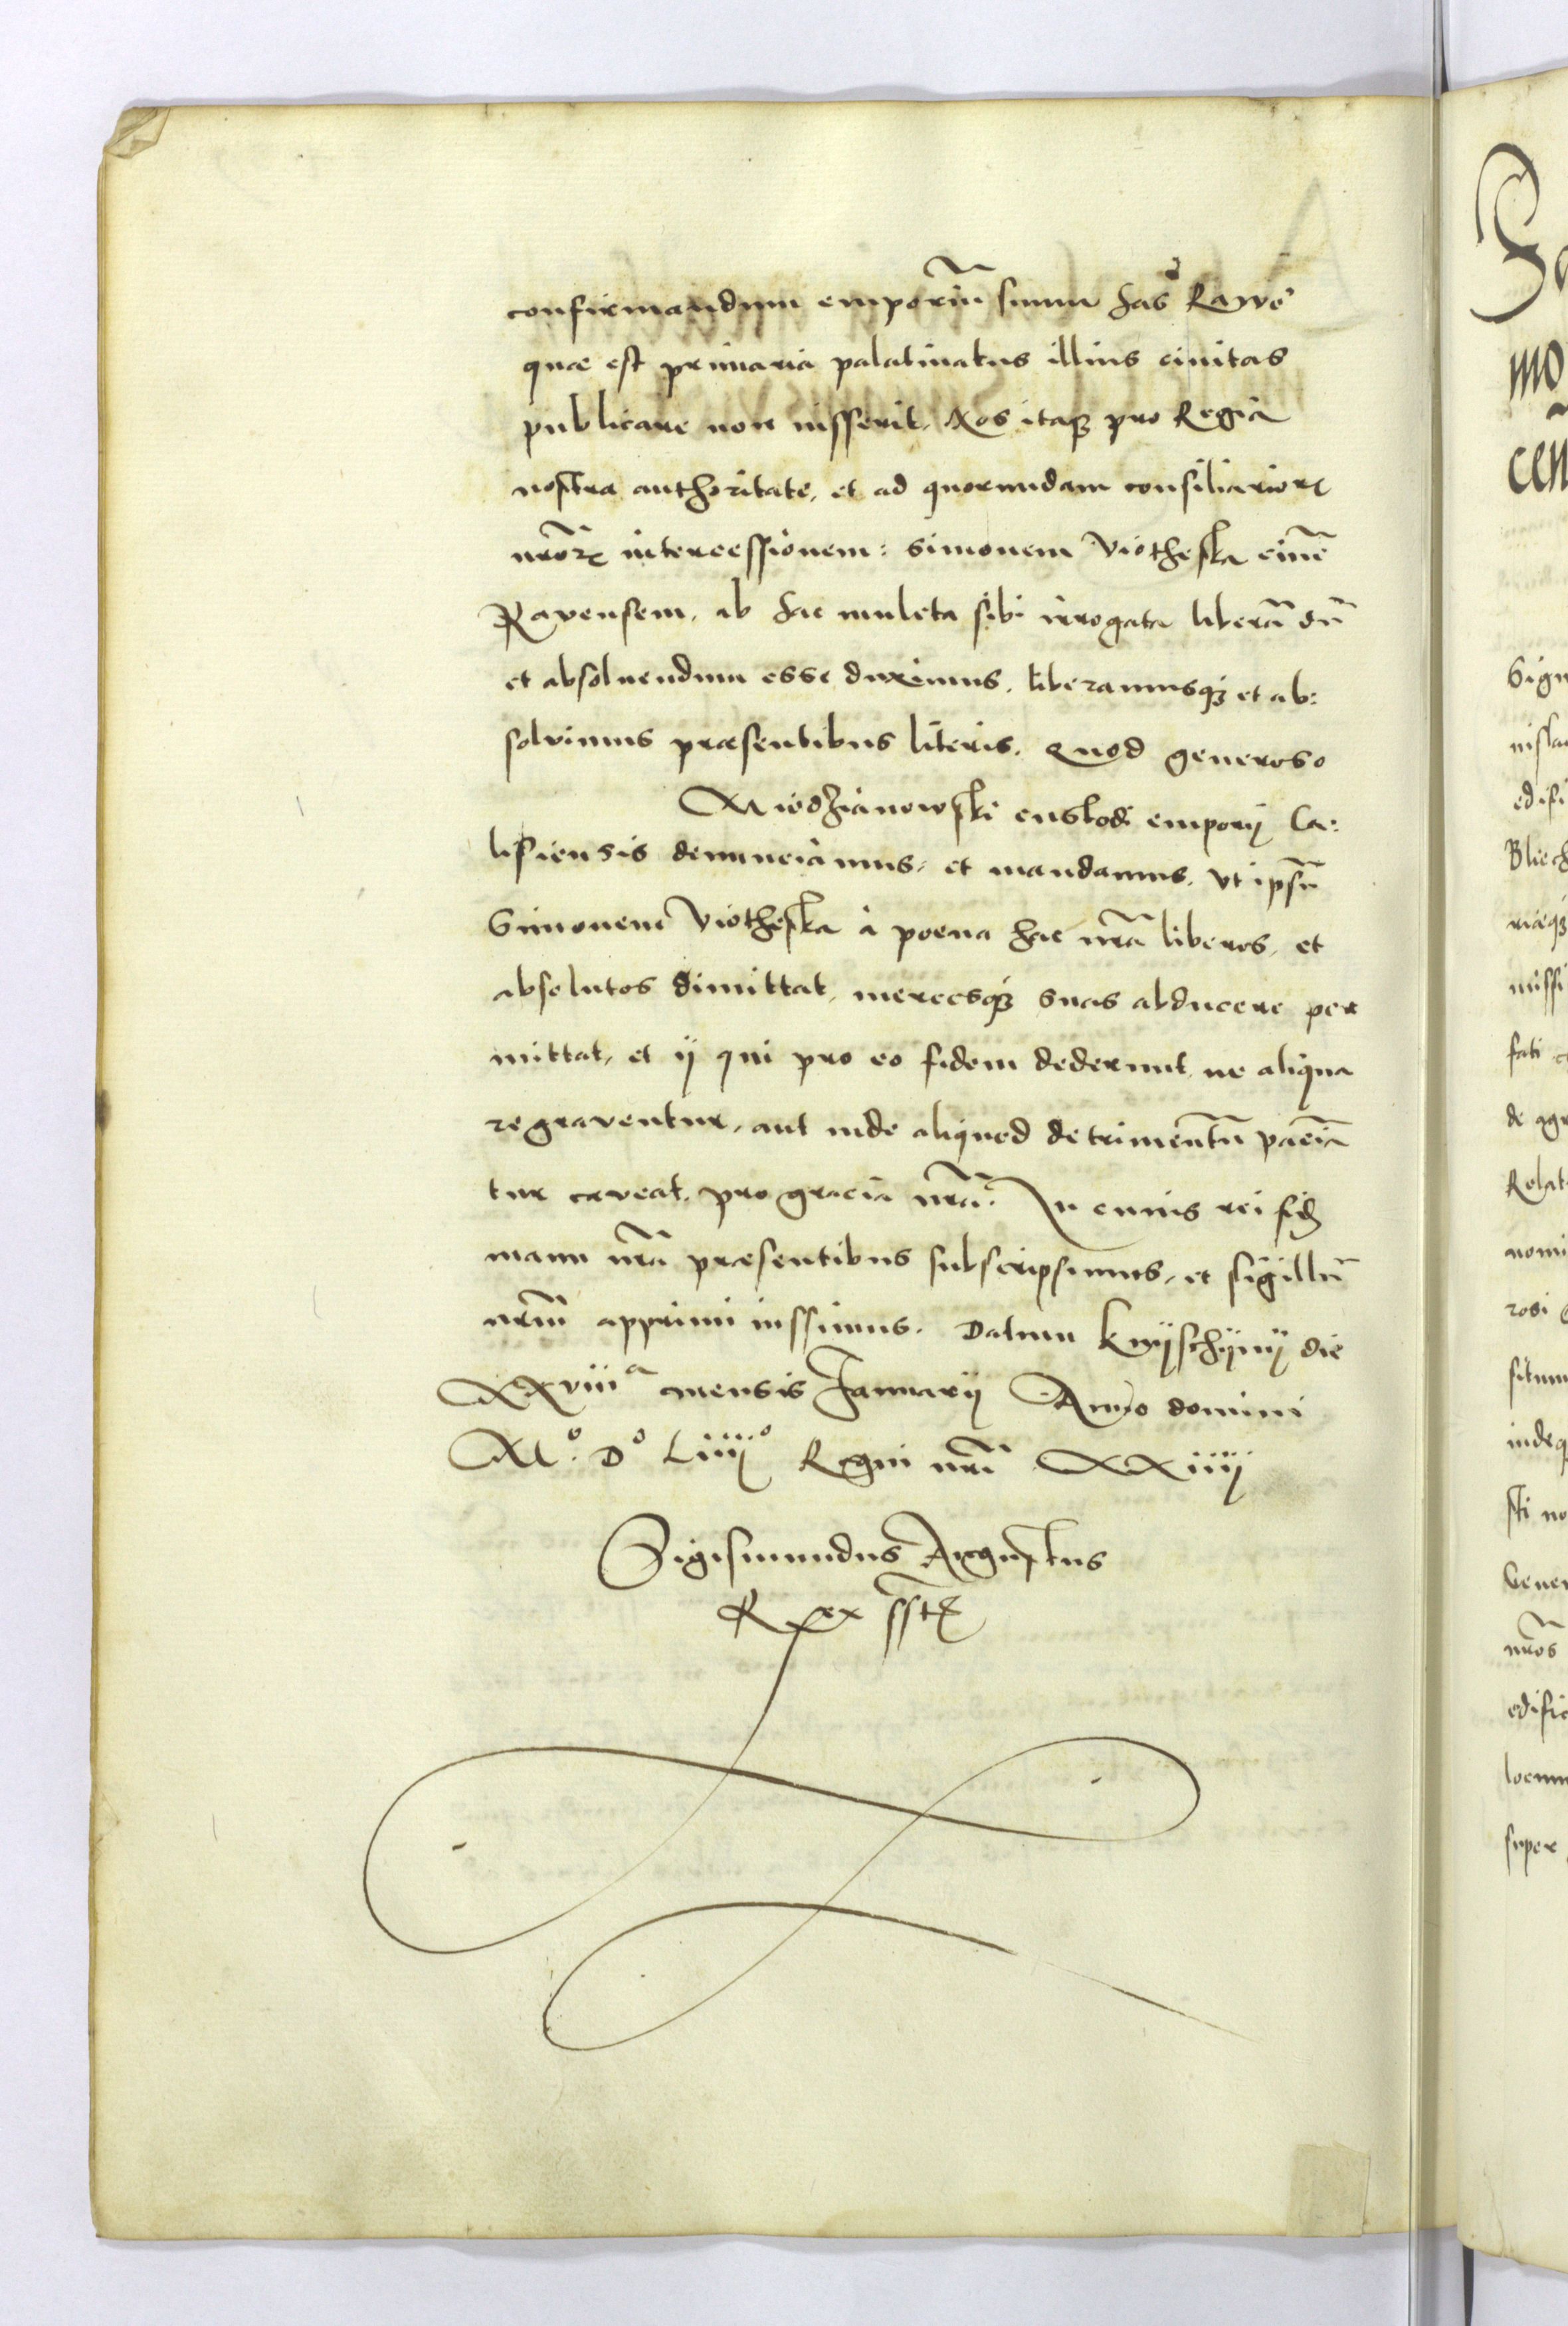 confirmandum emporiũ suum has Rawe
quae est primaria palatinatus illius civitas
publicare non iusserit. Nos itaqz pro Regia
nostra authoritate, et ad quorundam consiliarioꝝ
nr̃oꝝ intercessionem: Simonem Viotheska civẽ
Ravensem, ab hac mulcta sibi irrogata liberãdũ
et absoluendum esse duximus, liberamusqz et ab:
solvimus praesentibus literis. Quod generoso
Miodzianowski custodi emporij Ca:
lisiensis denunciamus, et mandamus, vt ipsũ
Simonem Viotheska à poena hac nr̃a liberos, et
absolutos dimittat, mercesqz suas abducere per
mittat, et ij qui pro eo fidem dederunt, ne aliqua
re graventur, aut inde aliquod detrimentũ pacia
tur caveat, pro gracia nr̃a. In cuius rei fidẽ
manu nr̃a praesentibus subscripsimus, et sigillũ
nr̃um apprimi iussimus. Datum Knÿschÿnÿ die
XXviii a mensis Januarij Anno domini
Mº. Dº Liiijº Regni nr̃i XXiiij
Sigismundus Augustus
Rex sst
Sigis
edifi
Bliech
riaeqz
missi
fati
de agr
Relat
nomi
rosi
situm
indeq
sti no
Gener
nr̃os
edific
locum
super